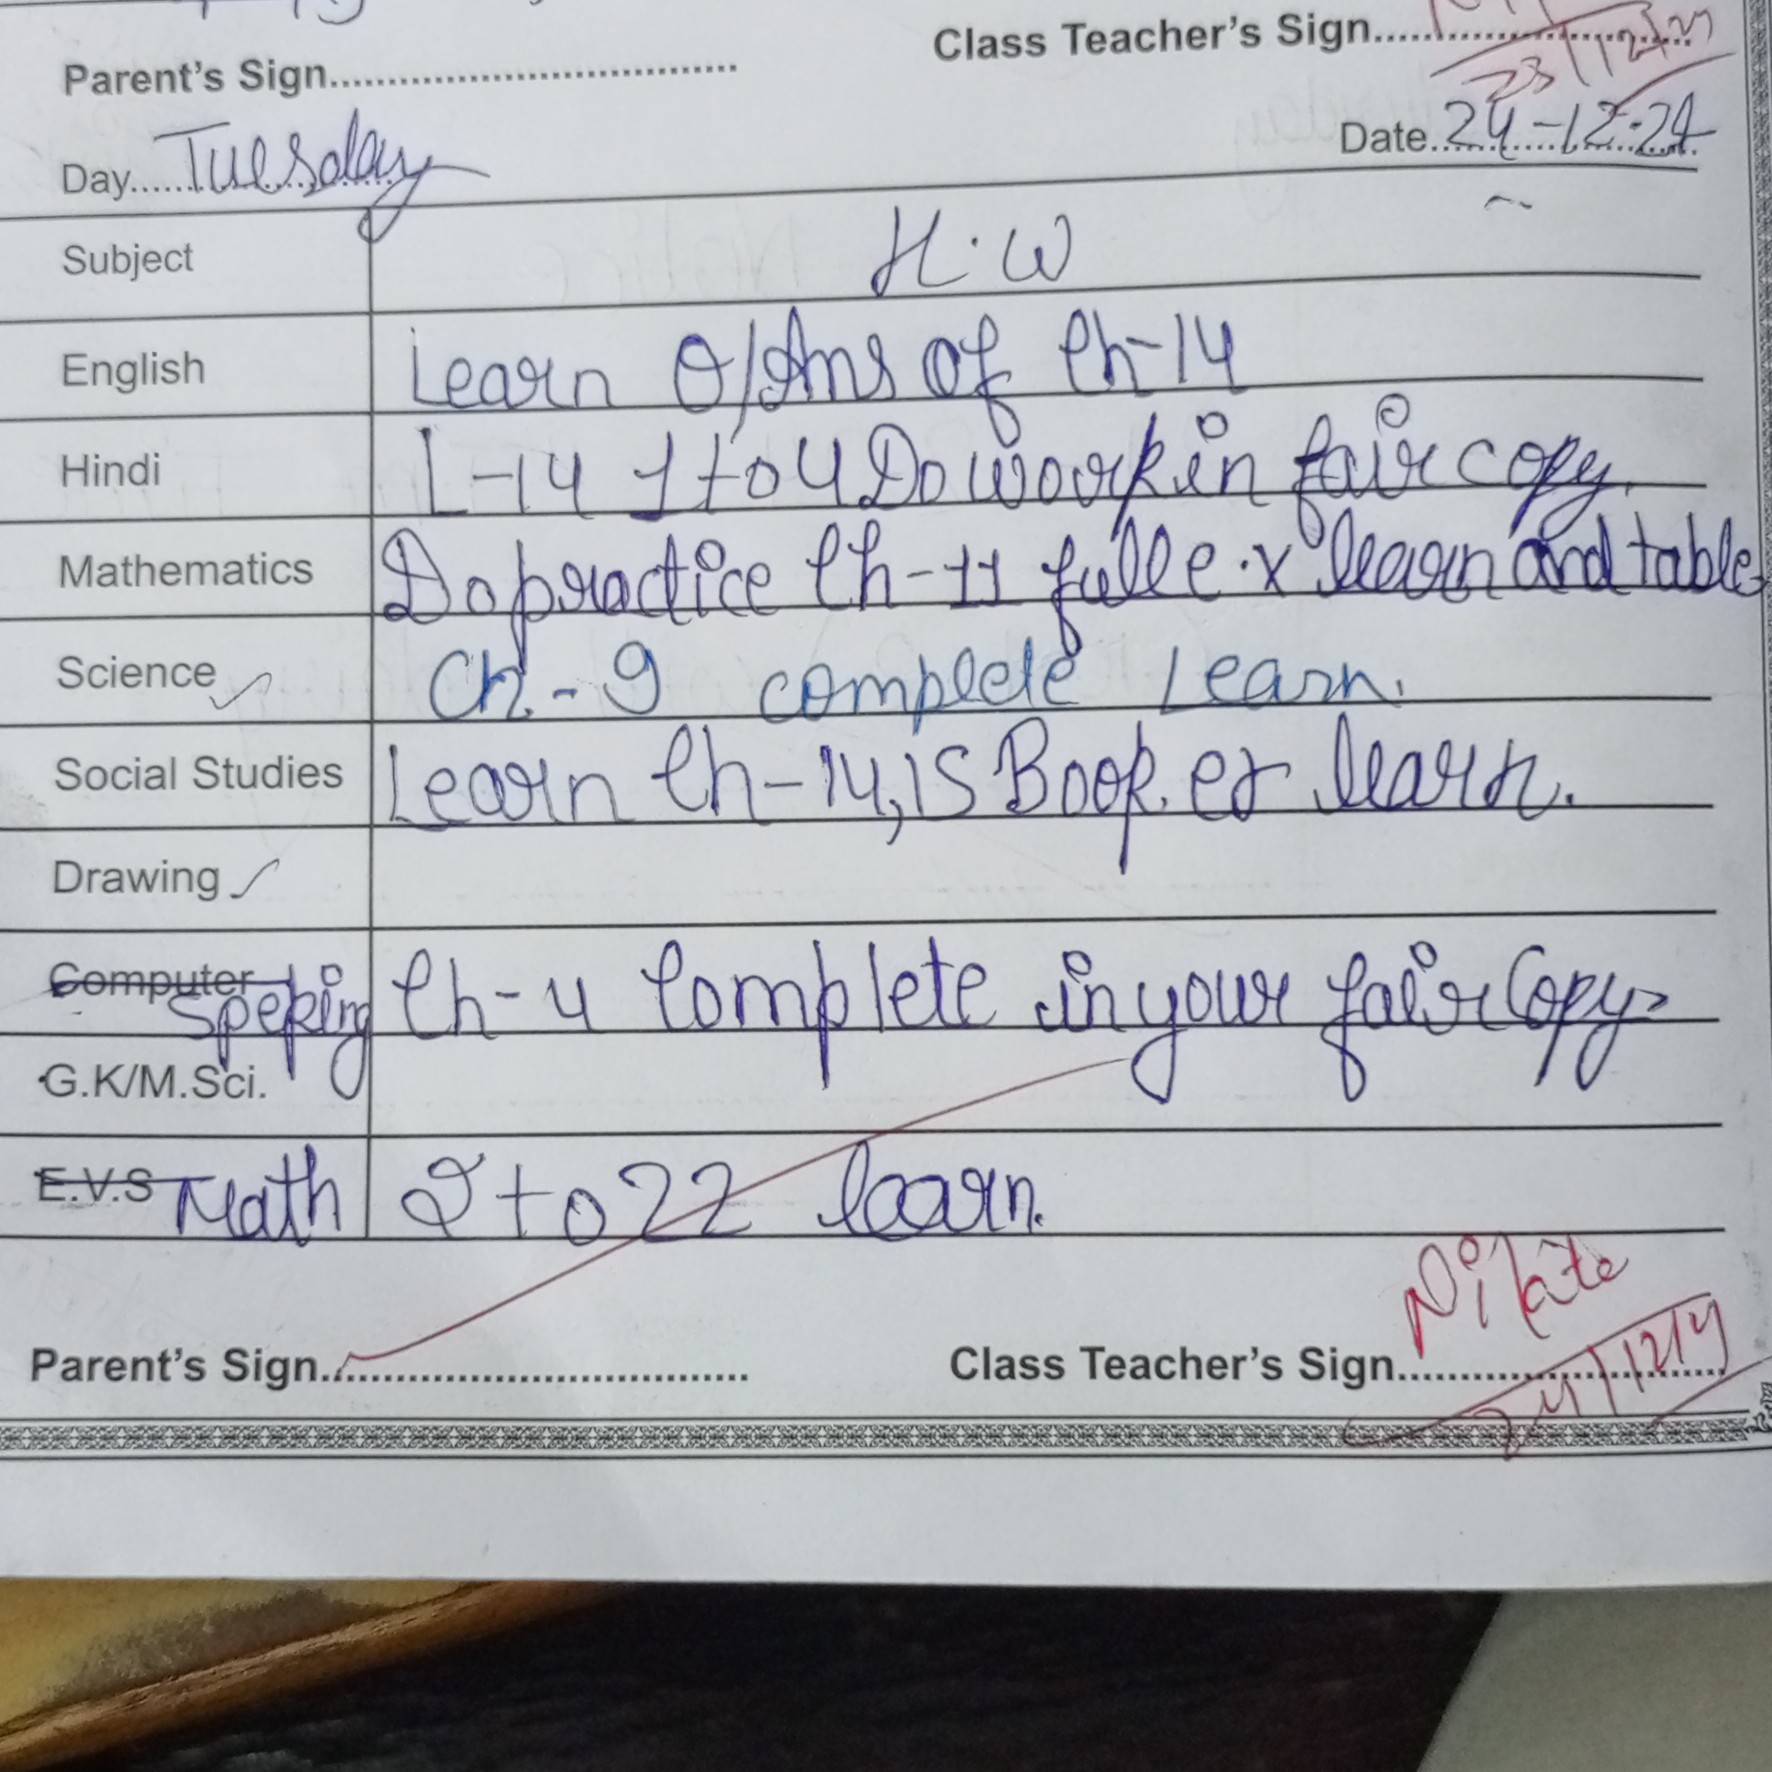 Class Teacher's Sign
23/12/24
Parent's Sign
Day Tuesday Date 24-12-24
Subject H.W
English Learn Q/Ans of Ch-14
Hindi L-14 1 to 4 Do woork in fair copy.
Mathematics Do practice Ch-11 full e.x learn and table
Science Ch.-9 complete Learn.
Social Studies Learn Ch-14,15 Book. ex learn.
Drawing
Computer Speking Ch-4 Complete in your fair Copy.
G.K/M.Sci.
E.V.S Math 2 to 22 learn.
Parent's Sign Class Teacher's Sign
24/12/24